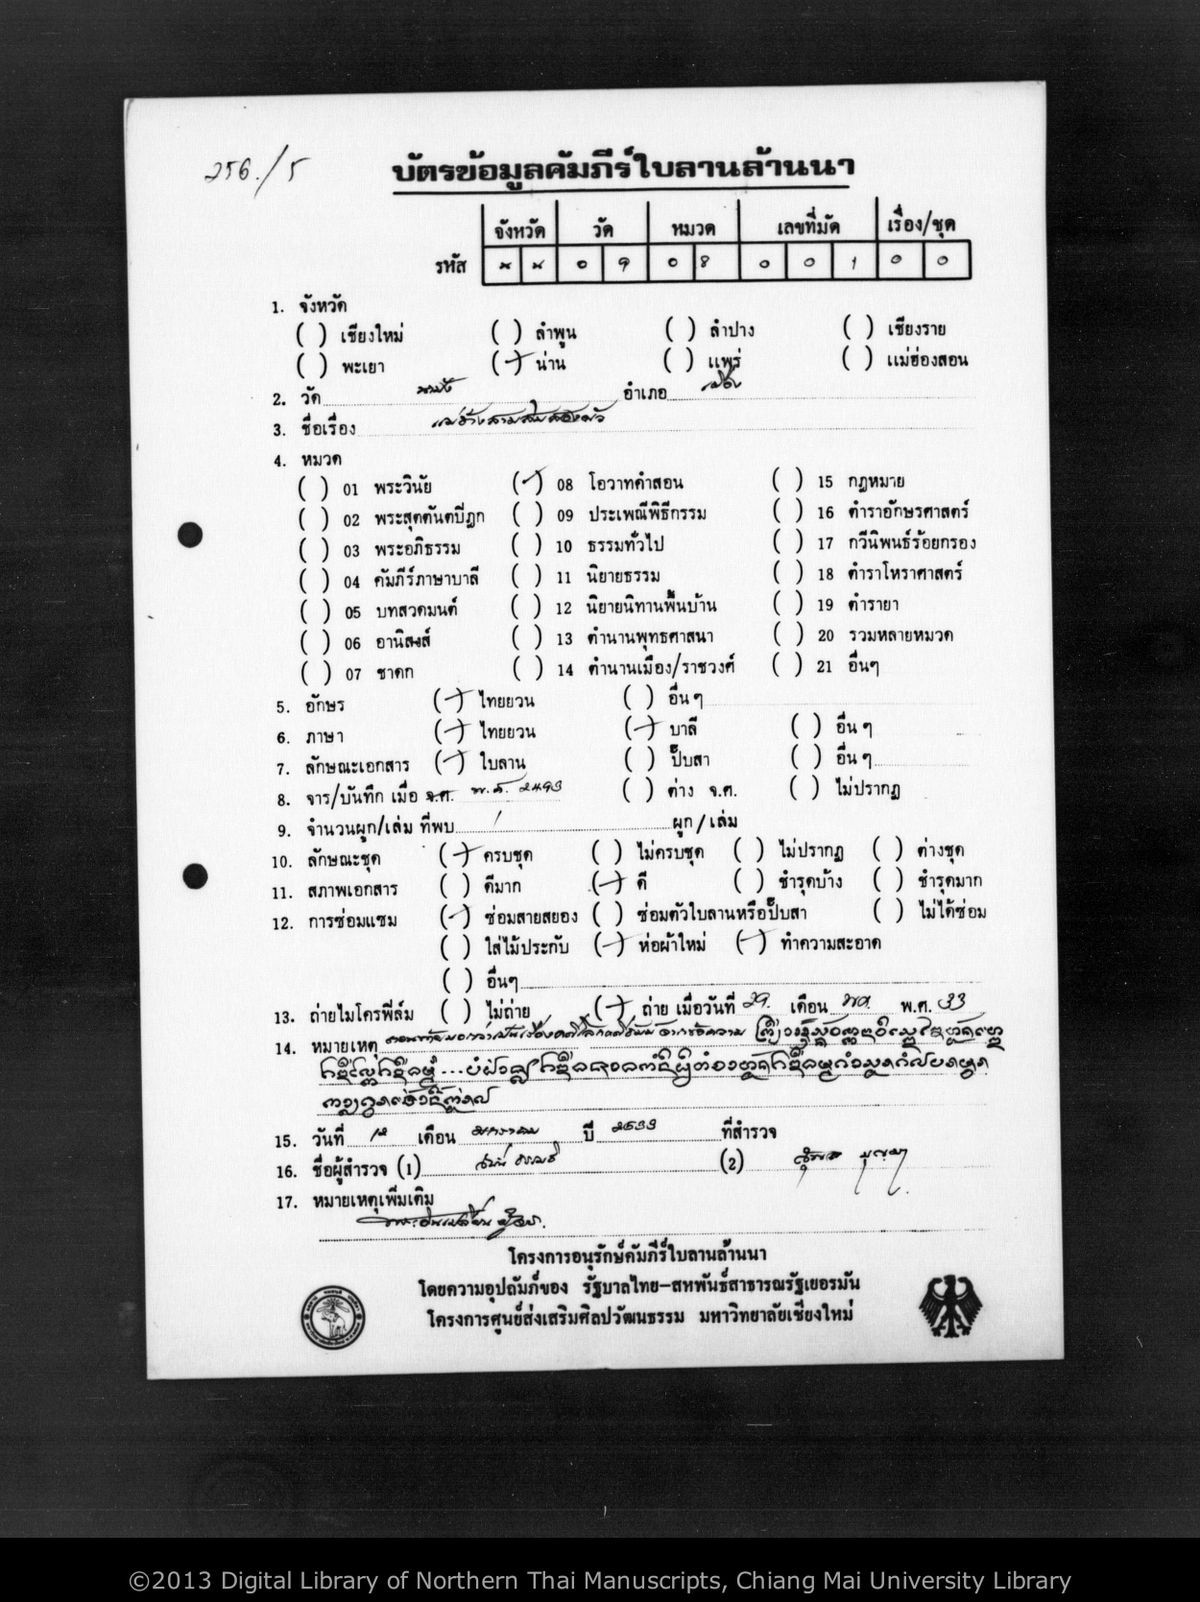 256./5
บัตรข้อมูลคัมภีร์ใบลานล้านนา
จังหวัด วัด หมวด เลขที่มัด เรื่อง/ชุด
รหัส ๐ ๑ ๐ ๘ ๐ ๐ ๑ ๐ ๐
1. จังหวัด
( ) เชียงใหม่ ( ) ลำพูน ( ) ลำปาง ( ) เชียงราย
( ) พะเยา (✓) น่าน ( ) แพร่ ( ) แม่ฮ่องสอน
2. วัด อำเภอ
3. ชื่อเรื่อง
4. หมวด
( ) 01 พระวินัย (✓) 08 โอวาทคำสอน ( ) 15 กฎหมาย
( ) 02 พระสุตตันตปิฎก ( ) 09 ประเพณีพิธีกรรม ( ) 16 ตำราอักษรศาสตร์
( ) 03 พระอภิธรรม ( ) 10 ธรรมทั่วไป ( ) 17 กวีนิพนธ์ร้อยกรอง
( ) 04 คัมภีร์ภาษาบาลี ( ) 11 นิยายธรรม ( ) 18 ตำราโหราศาสตร์
( ) 05 บทสวดมนต์ ( ) 12 นิยายนิทานพื้นบ้าน ( ) 19 ตำรายา
( ) 06 อานิสงส์ ( ) 13 ตำนานพุทธศาสนา ( ) 20 รวมหลายหมวด
( ) 07 ชาดก ( ) 14 ตำนานเมือง/ราชวงศ์ ( ) 21 อื่นๆ
5. อักษร (✓) ไทยยวน ( ) อื่น ๆ
6. ภาษา (✓) ไทยยวน (✓) บาลี ( ) อื่น ๆ
7. ลักษณะเอกสาร (✓) ใบลาน ( ) ปั๊บสา ( ) อื่น ๆ
8. จาร/บันทึก เมื่อ จ.ศ. พ.ศ. 2493 ( ) ต่าง จ.ศ. ( ) ไม่ปรากฏ
9. จำนวนผูก/เล่ม ที่พบ 1 ผูก/เล่ม
10. ลักษณะชุด (✓) ครบชุด ( ) ไม่ครบชุด ( ) ไม่ปรากฏ ( ) ต่างชุด
11. สภาพเอกสาร ( ) ดีมาก (✓) ดี ( ) ชำรุดบ้าง ( ) ชำรุดมาก
12. การซ่อมแซม (✓) ซ่อมสายสยอง ( ) ซ่อมตัวใบลานหรือปั๊บสา ( ) ไม่ได้ซ่อม
( ) ใส่ไม้ประกับ (✓) ห่อผ้าใหม่ (✓) ทำความสะอาด
( ) อื่นๆ
13. ถ่ายไมโครฟิล์ม ( ) ไม่ถ่าย (✓) ถ่าย เมื่อวันที่ 29. เดือน พ.ศ. 33
14. หมายเหตุ
15. วันที่ 12 เดือน มกราคม ปี 2533 ที่สำรวจ
16. ชื่อผู้สำรวจ (1) (2)
17. หมายเหตุเพิ่มเติม
โครงการอนุรักษ์คัมภีร์ใบลานล้านนา
โดยความอุปถัมภ์ของ รัฐบาลไทย-สหพันธ์สาธารณรัฐเยอรมัน
โครงการศูนย์ส่งเสริมศิลปวัฒนธรรม มหาวิทยาลัยเชียงใหม่
©2013 Digital Library of Northern Thai Manuscripts, Chiang Mai University Library